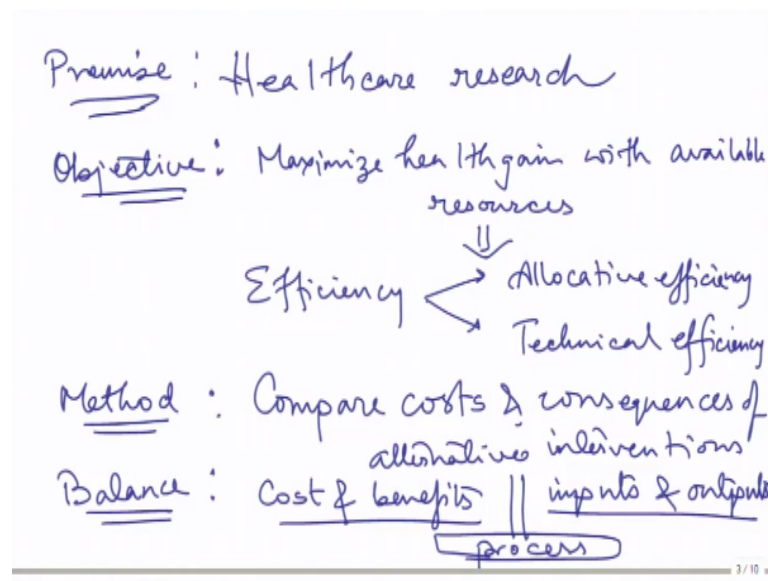 Premise : Healthcare research
Objective : Maximize health gain with available
resources
⇓
Efficiency
Allocative efficiency
Technical efficiency
Method : Compare costs & consequences of
alternative interventions
Balance : Cost & benefits || inputs & outputs
process
3/10